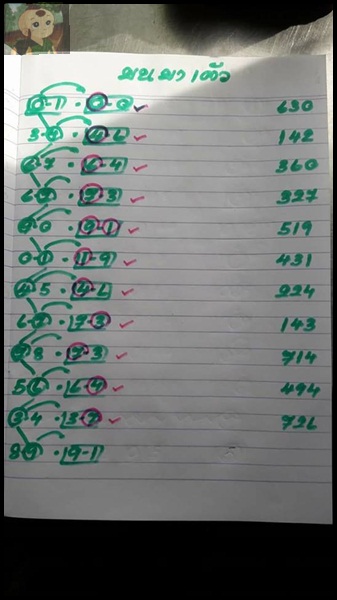 บนมาเด้ว
0-1 · 0-0 ✓ 630
3-0 · 4-6 ✓ 142
6 7 · 6-4 ✓ 360
6 9 · 9-3 ✓ 327
9 0 · 9-1 ✓ 519
0 1 · 1-9 ✓ 431
4 5 · 4-6 ✓ 224
6 7 · 7-3 ✓ 143
7 8 · 7 3 ✓ 714
5 6 · 6-4 ✓ 494
3 4 · 3-7 ✓ 726
8 9 · 9-1